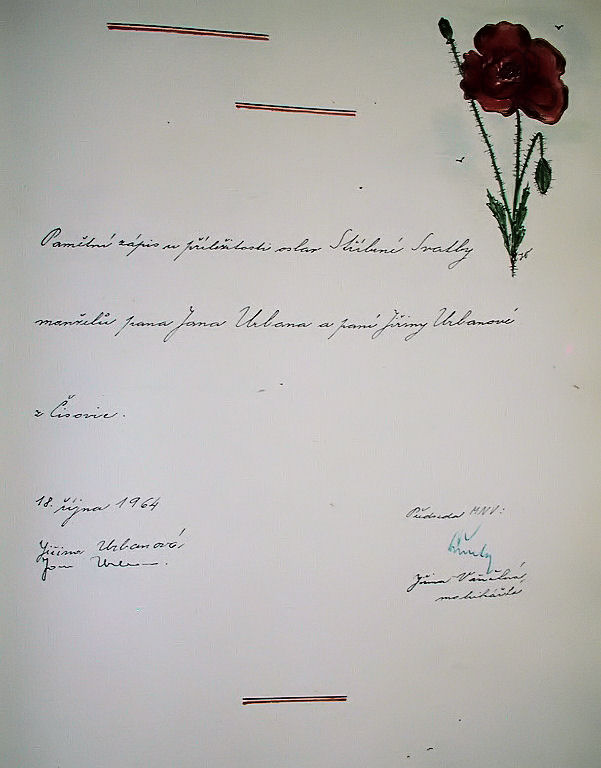 Pamětní zápis u příležitosti oslav Stříbrné Svatby
manželů pana Jana Urbana a paní Jiřiny Urbanové
z Čisovic.
18. října 1964
Předseda MNV:
Jiřina Urbanová
Jan Urban.
Jiřina
matrikářka